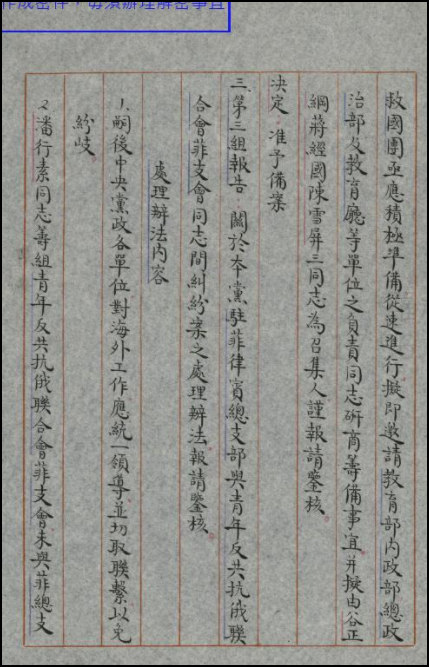 作成密件，毋須辦理解密事宜
救國團亟應積極準備從速進行擬即邀請教育部內政部總政
治部及教育廳等單位之負責同志研商籌備事宜并擬由谷正
綱蔣經國陳雪屏三同志為召集人謹報請鑒核。
決定 准予備案
三、第三組報告：關於本黨駐菲律賓總支部與青年反共抗俄聯
合會菲支會同志間糾紛案之處理辦法報請鑒核。
處理辦法內容
1.嗣後中央黨政各單位對海外工作應統一領導並切取聯繫以免
紛歧
2.潘行素同志等組青年反共抗俄聯合會菲支會未與菲總支